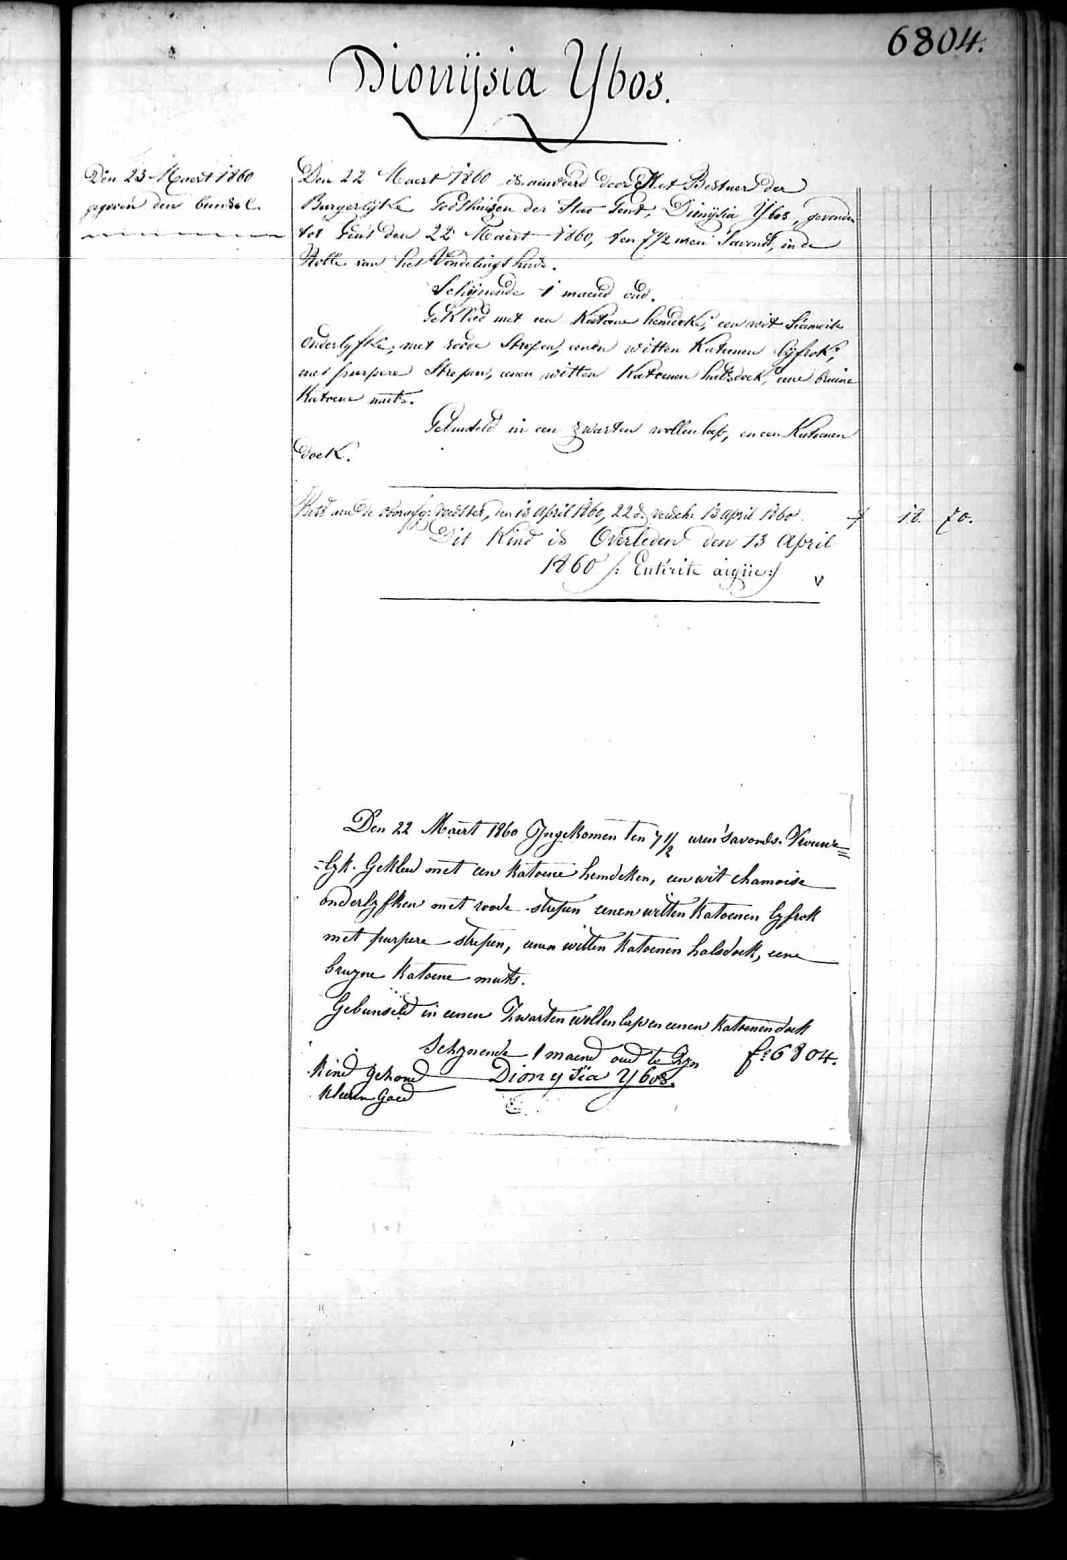 6804.
Dionÿsia Ybos.
Den 23 Maert 1860
gegeven den bundel.
Den 22 Maert 1860 is aenveerd door Het Bestuer der
Burgerlÿke Godshuizen der Stad Gent, Dionÿsia Ybos, gevonden
tot Gent den 22 Maert 1860, ten 7 1/2 uren 'savonds, in de
Rolle van het Vondelingshuis.
Schÿnende 1 maend oud.
Gekleed met een Katoene hemdeke, een wit Siamoise
Onderlyfke, met roode Strepen, eenen witten Katoenen lÿfrok,
met purpere Strepen, eenen witten Katoenen halsdoek, eene bruine
Katoene muts.
Gebunseld in een zwarten wollen lap, en een Katoenen
doek.
den 13 april 1860, 22 13 april 1860. 12 70.
Dit Kind is Overleden den 13 April
1860 /: Entérite aigüe :/ v
Den 22 Maert 1860 Ingekomen ten 7 1/2 uren 'savonds. Vrouwe=
=lyk. Gekleed met een katoene hemdeken, een wit chamoise
onderlyfken met roode strepen eenen witten katoenen lyfrok
met purpere strepen, eenen witten katoenen halsdoek, eene
bruyne katoene muts.
Gebunseld in eenen Zwarten wollen lap en eenen katoenen doek
Schynende 1 maend oud te Zyn f: 6804.
Kind gezond Dionysia Ybos.
Kleeren Goed